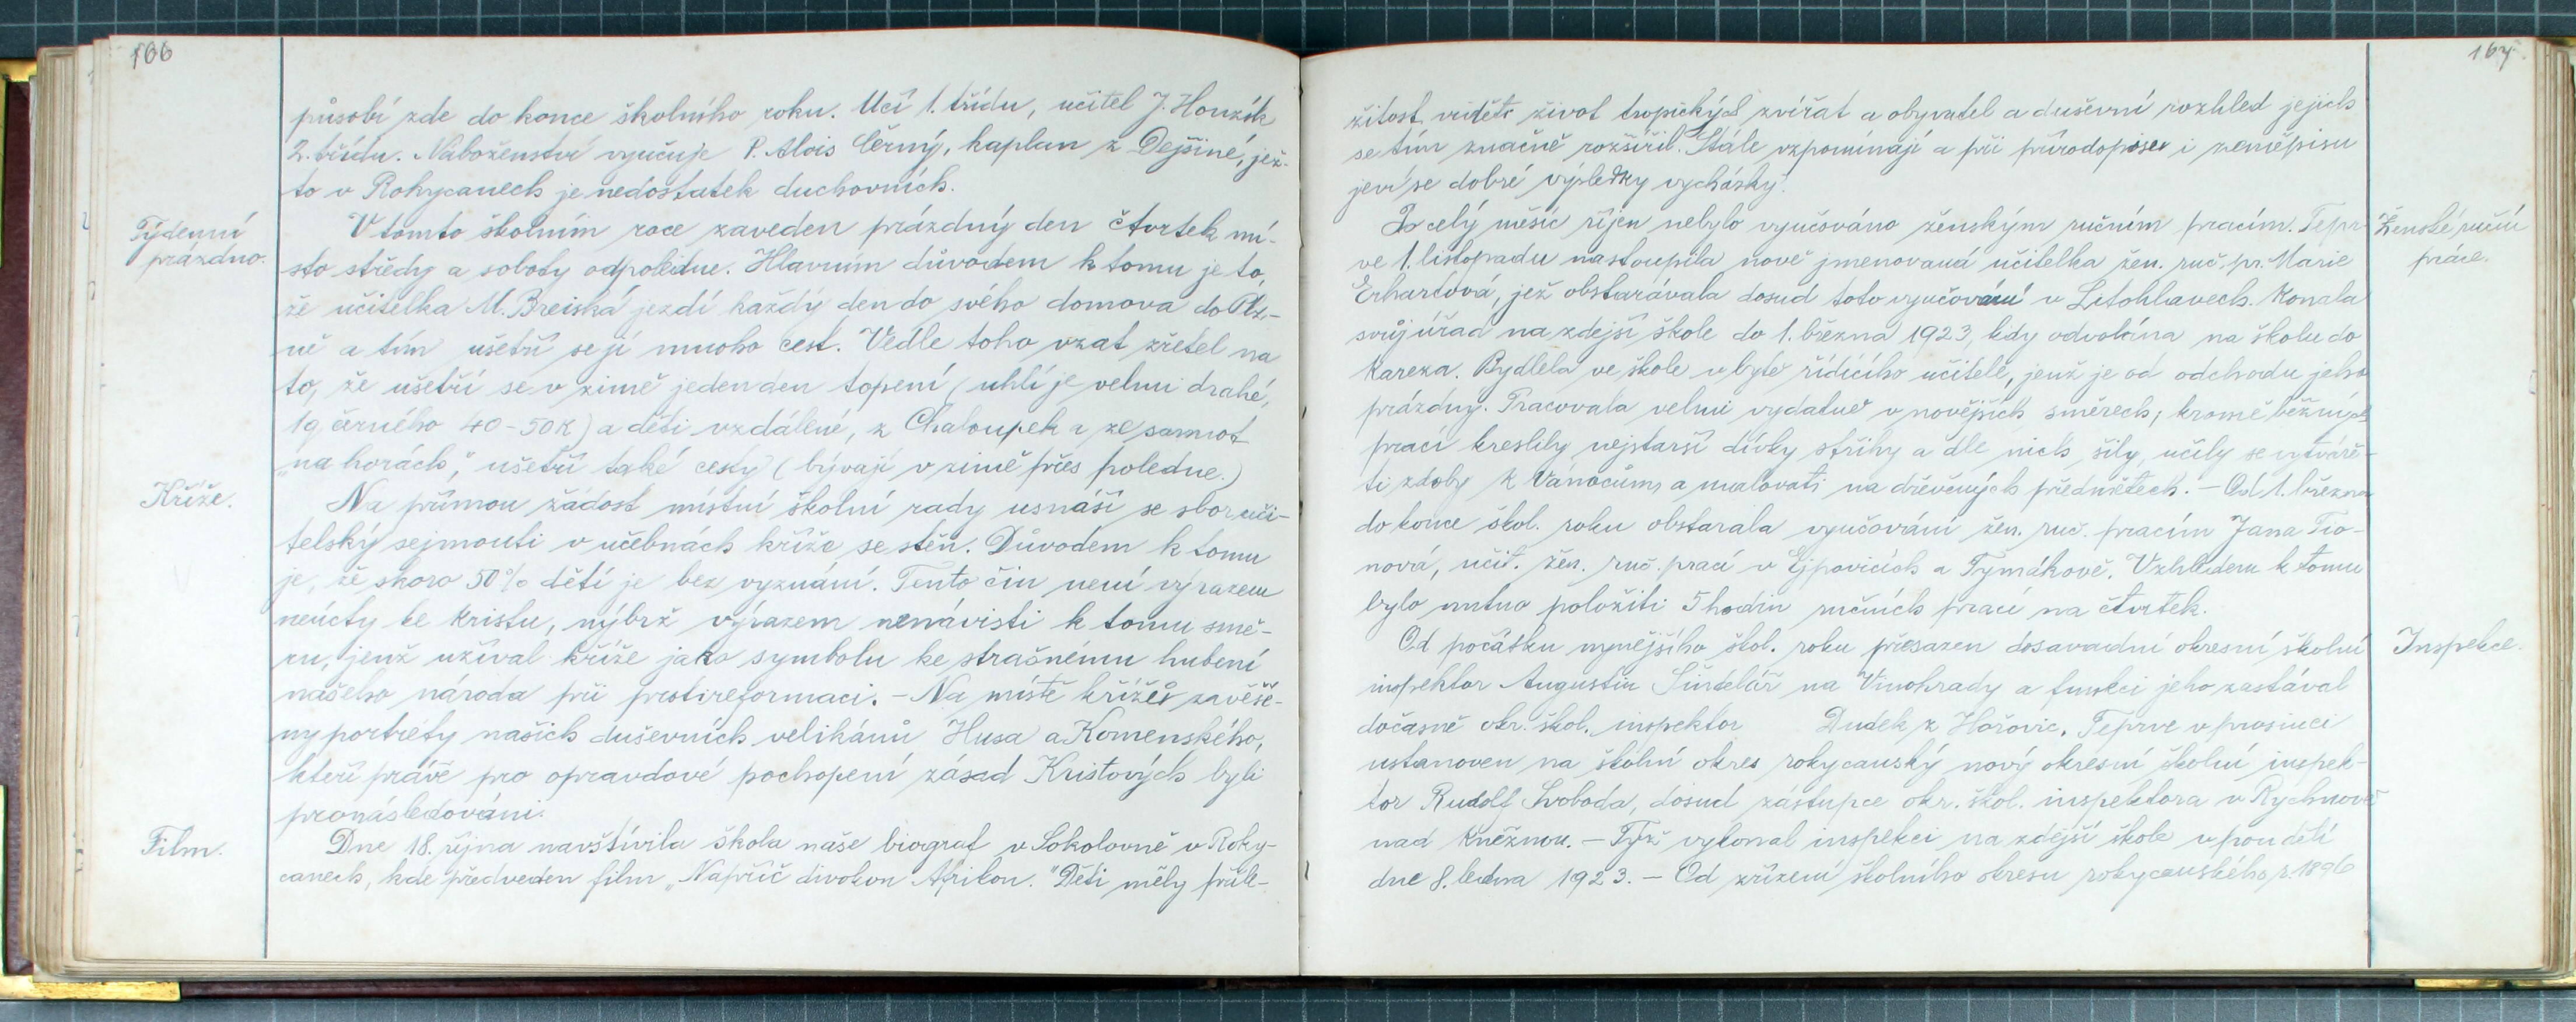 166
působí zde do konce školního roku. Učí 1. třídu, učitel J. Honzík
2. třídu. Náboženství vyučuje P. Alois Černý, kaplan z Dejšiné, jež-
to v Rokycanech je nedostatek duchovních.
Týdenní
prázdno.
V tomto školním roce zaveden prázdný den čtvrtek mí-
sto středy a soboty odpoledne. Hlavním důvodem k tomu je to,
že učitelka M. Breiská jezdí každý den do svého domova do Plz-
ně a tím ušetří se jí mnoho cest. Vedle toho vzat zřetel na
to, že ušetří se v zimě jeden den topení (uhlí je velmi drahé,
1q černého 40-50K) a děti vzdálené, z Chaloupek a ze samot
„na horách," ušetří také cesty (bývají v zimě přes poledne.)
Kříže.
Na přímou žádost místní školní rady usnáší se sbor uči-
telský sejmouti v učebnách kříže se stěn. Důvodem k tomu
je, že skoro 50% dětí je bez vyznání. Tento čin není výrazem
neúcty ke Kristu, nýbrž výrazem nenávisti k tomu smě-
ru, jenž užíval kříže jako symbolu ke strašnému hubení
našeho národa při protireformaci. - Na místě křížů zavěše-
ny portréty našich duševních velikánů Husa a Komenského,
kteří právě pro opravdové pochopení zásad Kristových byli
pronásledováni.
Film.
Dne 18. října navštívila škola naše biograf v Sokolovně v Roky-
canech, kde předveden film „Napříč divokou Afrikou." Děti měly příle-
167.
žitost viděti život tropických zvířat a obyvatel a duševní rozhled jejich
se tím značně rozšířil. Stále vzpomínají a při přírodopise i zeměpisu
jeví se dobré výsledky vycházky.
Ženské ruční
práce.
Po celý měsíc říjen nebylo vyučováno ženským ručním pracím. Tepr-
ve 1. listopadu nastoupila nově jmenovaná učitelka žen. ruč. pr. Marie
Erhartová, jež obstarávala dosud toto vyučování v Litohlavech. Konala
svůj úřad na zdejší škole do 1. března 1923, kdy odvolána na školu do
Kareza. Bydlela ve škole v bytě řídícího učitele, jenž je od odchodu jeho
prázdny. Pracovala velmi vydatně v novějších směrech; kromě běžných
prací kreslily nejstarší dívky střihy a dle nich šily, učily se vytváře-
ti zdoby k Vánocům a malovati na dřevěných předmětech. - Od 1. března
do konce škol. roku obstarala vyučování žen. ruč. pracím Jana Tro-
nová, učit. žen. ruč. prací v Ejpovicích a Tymákově. Vzhledem k tomu
bylo nutno položiti 5 hodin ručních prací na čtvrtek.
Inspekce.
Od počátku nynějšího škol. roku přesazen dosavadní okresní školní
inspektor Augustin Šindelář na Vinohrady a funkci jeho zastával
dočasně okr. škol. inspektor Dudek z Hořovic. Teprve v prosinci
ustanoven na školní okres rokycanský nový okresní školní inspek-
tor Rudolf Svoboda, dosud zástupce okr. škol. inspektora v Rychnově
nad Kněžnou. - Týž vykonal inspekci na zdejší škole v pondělí
dne 8. ledna 1923. - Od zřízení školního okresu rokycanského r. 1896